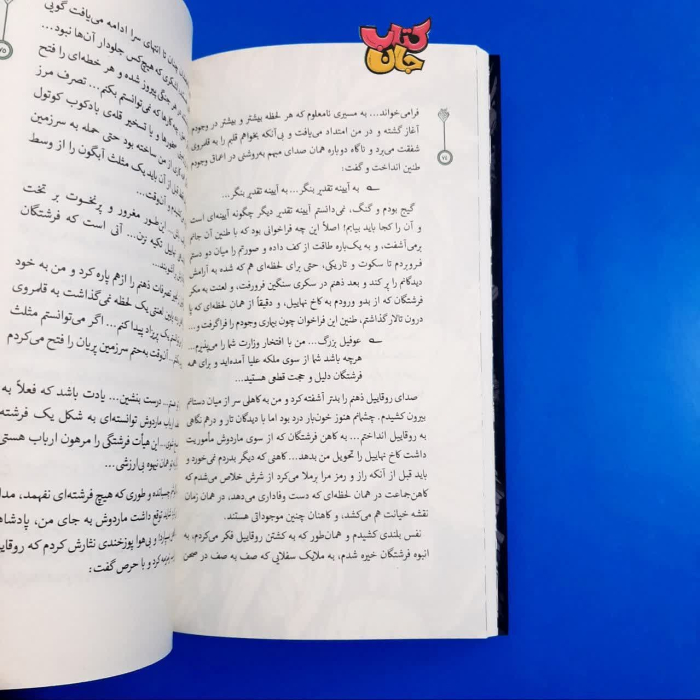 کتاب
جان
فرامی‌خواند... به مسیری نامعلوم که هر لحظه بیشتر و بیشتر در وجودم
آغاز گشته و در من امتداد می‌یافت و بی‌آنکه بخواهم قلبم را به قلمروی
شفقت می‌برد و ناگاه دوباره همان صدای مبهم به‌روشنی در اعماق وجودم
طنین انداخت و گفت:
به آیینه تقدیر بنگر... به آیینه تقدیر بنگر...
گیج بودم و گنگ، نمی‌دانستم آیینه تقدیر دیگر چگونه آیینه‌ای است
و آن را کجا باید بیابم! اصلاً این چه فراخوانی بود که با طنین آن جانم
برمی‌آشفت، و به یک‌باره طاقت از کف داده و صورتم را میان دو دستم
فروبردم تا سکوت و تاریکی، حتی برای لحظه‌ای هم که شده به آرامش
دیدگانم را پر کند و بعد ذهنم در سکری سنگین فرورفت، و لعنت به مکر
فرشتگان که از بدو ورودم به کاخ نهابیل، و دقیقاً از همان لحظه‌ای که پا
درون تالار گذاشتم، طنین این فراخوان چون بیماری وجودم را فراگرفت و...
عوفیل بزرگ... من با افتخار وزارت شما را می‌پذیرم...
هرچه باشد شما از سوی ملکه علیا آمده‌اید و برای همه
فرشتگان دلیل و حجت قطعی هستید...
صدای روقاییل ذهنم را بدتر آشفته کرد و من به کاهلی سر از میان دستانم
بیرون کشیدم. چشمانم هنوز خون‌بار درد بود اما با دیدگان تار و درهم نگاهی
به روقاییل انداختم... به کاهن فرشتگان که از سوی ماردوش مأموریت
داشت کاخ نهابیل را تحویل من بدهد... کاهنی که دیگر بدردم نمی‌خورد و
باید قبل از آنکه راز و رمز مرا برملا می‌کرد از شرش خلاص می‌شدم که
کاهن‌جماعت در همان لحظه‌ای که دست وفاداری می‌دهد، در همان زمان
نقشه خیانت هم می‌کشد، و کاهنان چنین موجوداتی هستند.
نفس بلندی کشیدم و همان‌طور که به کشتن روقاییل فکر می‌کردم، به
انبوه فرشتگان خیره شدم، به ملایک سفلایی که صف به صف در صحن
۷۴
۷۵
تا انتهای سرا ادامه می‌یافت گویی
لشکری که هیچ‌کس جلودار آن‌ها نبود...
هر جنگی پیروز شده و هر خطه‌ای را فتح
چه کارها که نمی‌توانستم بکنم... تصرف مرز
و با تسخیر قله‌ی بادکوب کوتول
از من ساخته بود حتی حمله به سرزمین
قبل از آن باید یک مثلث آبگون را از وسط
و آن‌وقت...
این‌طور مغرور و پرنخوت بر تخت
نهابیل تکیه نزن... آنی است که فرشتگان
تصرفات ذهنم را ازهم پاره کرد و من به خود
لعنتی یک لحظه نمی‌گذاشت به قلمروی
یک پریزاد پیدا کنم... اگر می‌توانستم مثلث
آن‌وقت به‌حتم سرزمین پریان را فتح می‌کردم
درست بنشین... یادت باشد که فعلاً به
ارباب ماردوش توانسته‌ای به شکل یک فرشته
این هیأت فرشتگی را مرهون ارباب هستی
همان نیوه بی‌ارزشی...
چسبانده و طوری که هیچ فرشته‌ای نفهمد،
توقع داشت ماردوش به جای من، پادشاه
و بی‌هوا پوزخندی نثارش کردم که
کرد و با حرص گفت: